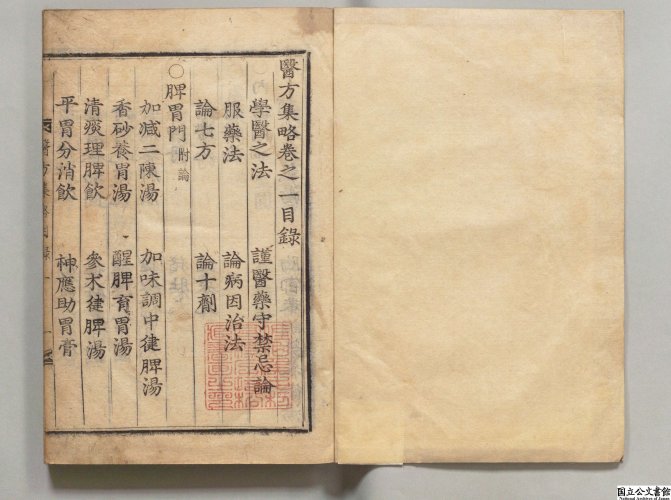 醫方集略卷之一目錄
學醫之法　謹醫藥守禁忌論
服藥法　論病因治法
論七方　論十劑
○脾胃門 附論
加减二陳湯　加味調中健脾湯
香砂養胃湯　醒脾育胃湯
清痰理脾飲　參朮健脾湯
平胃分消飲　神應助胃膏
醫方集略目錄　一
国立公文書館
National Archives of Japan